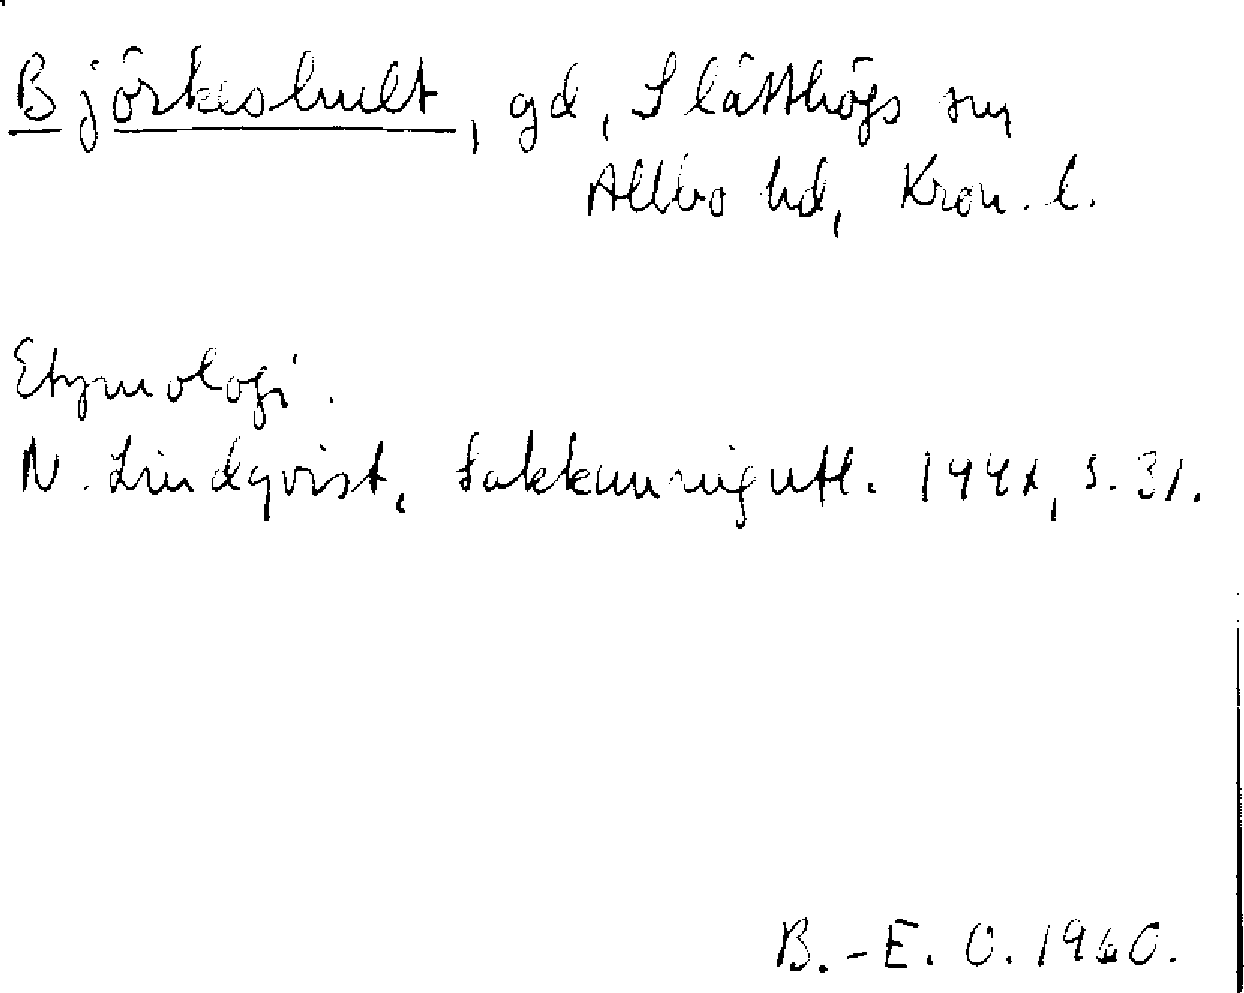 Björkeshult, gd, Slätthögs sn
Allbo hd, Kron. l.
Etymologi.
N. Lindqvist, Sakkunnigutl. 1941, s. 31.
B.-E. O. 1960.